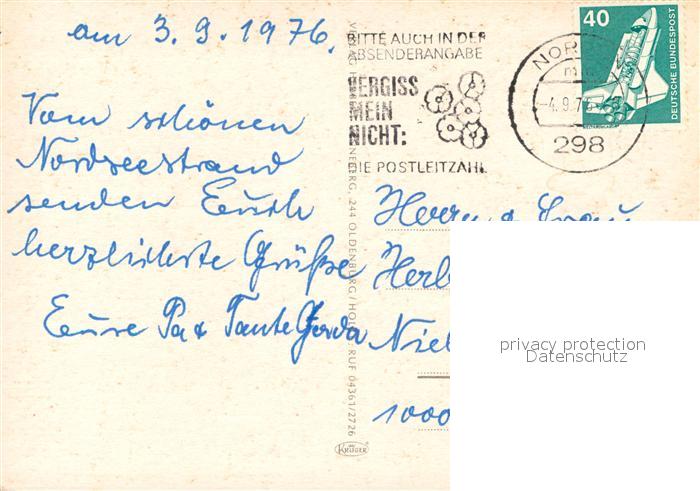 am 3.9.1976.
Vom schönen
Nordseestrand
senden Euch
herzlichste Grüße
Eure Pa & Tante Gerda
BITTE AUCH IN DER
ABSENDERANGABE
VERGISS
MEIN
NICHT:
DIE POSTLEITZAHL
NOR
-4.9.76
298
40
DEUTSCHE BUNDESPOST
Herrn & Frau
Herb
Niel
1000
244 OLDENBURG/HOLST RUF 04361/2726
KRÜGER
privacy protection
Datenschutz